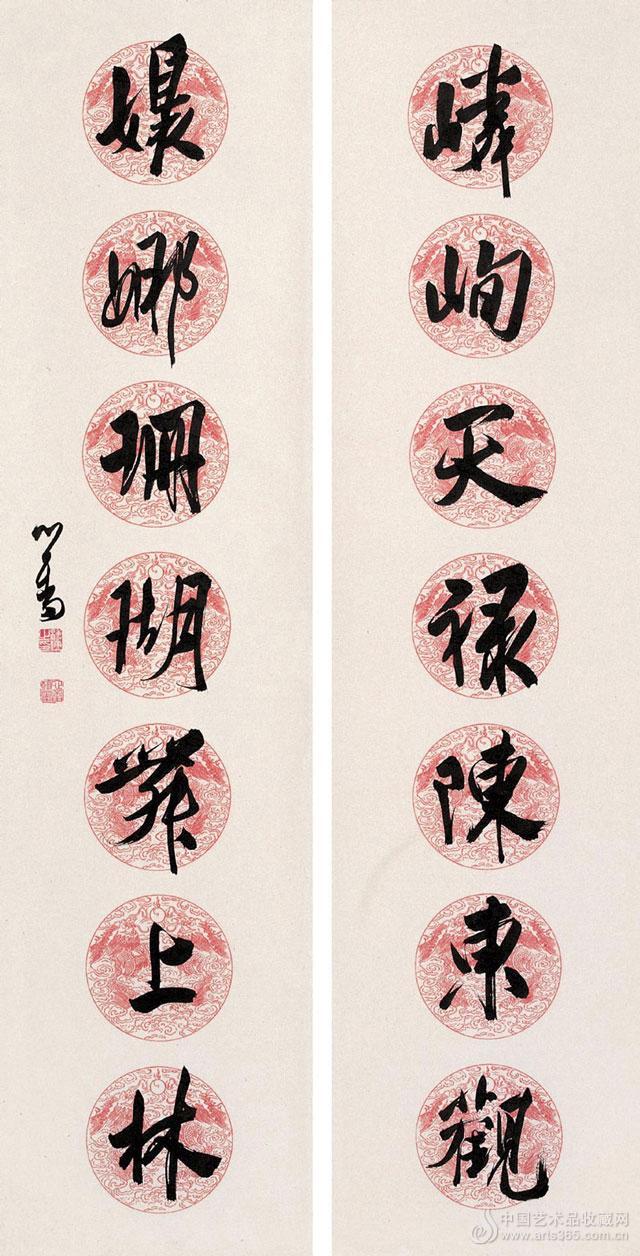 嶙峋天禄陳東觀
嬝娜珊瑚上林
心畬
中国艺术品收藏网
www.arts365.com.cn